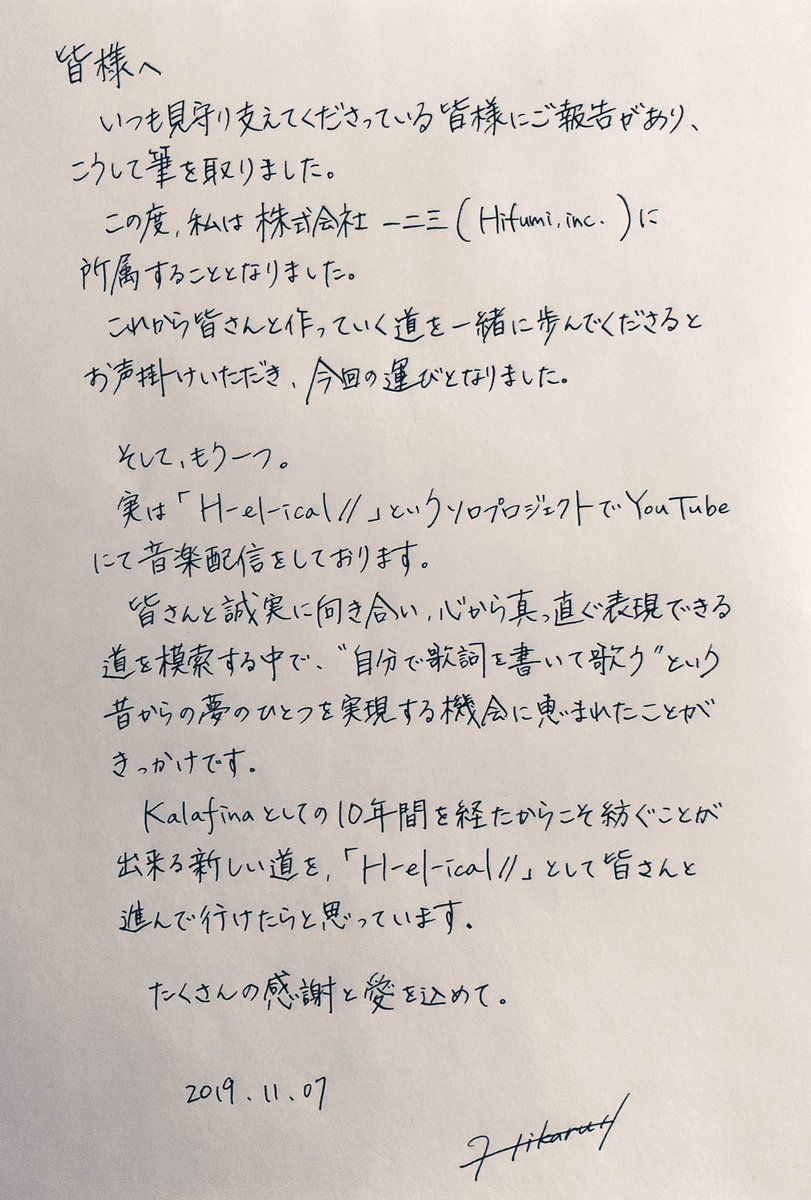 皆様へ
いつも見守り支えてくださっている皆様にご報告があり、
こうして筆を取りました。
この度、私は株式会社一二三(Hifumi,inc.)に
所属することとなりました。
これから皆さんと作っていく道を一緒に歩んでくださると
お声掛けいただき、今回の運びとなりました。
そして、もう一つ。
実は「H-el-ical//」というソロプロジェクトでYouTube
にて音楽配信をしております。
皆さんと誠実に向き合い、心から真っ直ぐ表現できる
道を模索する中で、"自分で歌詞を書いて歌う"という
昔からの夢のひとつを実現する機会に恵まれたことが
きっかけです。
Kalafinaとしての10年間を経たからこそ紡ぐことが
出来る新しい道を、「H-el-ical//」として皆さんと
進んで行けたらと思っています。
たくさんの感謝と愛を込めて。
2019.11.07
Hikaru//